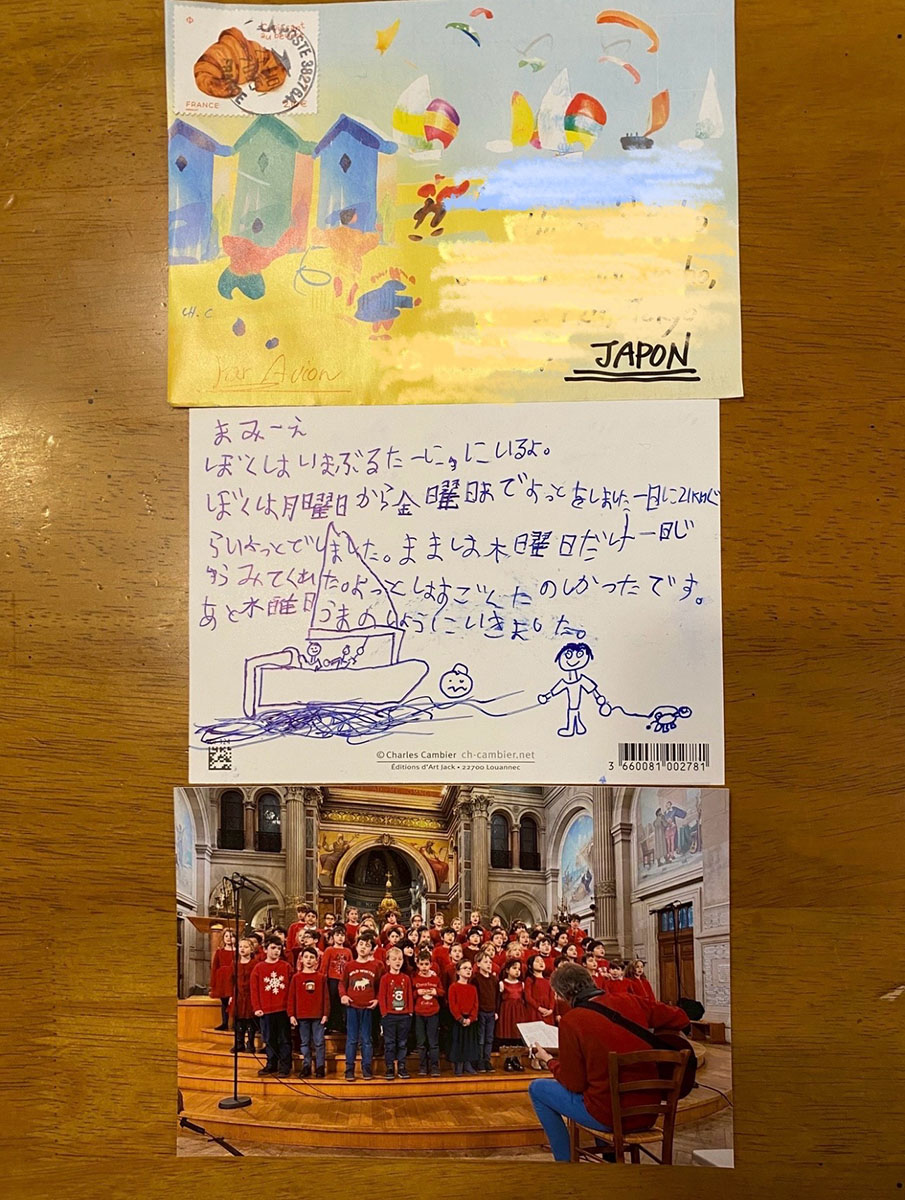 LA POSTE 38276A
FRANCE
CH. C
Par Avion
JAPON
まみーえ
ぼくはいまぶるたーにゅにいるよ。
ぼくは月曜日から金曜日までよっとをしました一日に2じかんぐ
らいよっとでしました。ままは木曜日だけ一日じ
ゅうみてくれた。よっとはすごくたのしかったです。
あと水曜日うまのしょうにいきました。
© Charles Cambier ch-cambier.net
Éditions d'Art Jack • 22700 Louannec
3 660081 002781